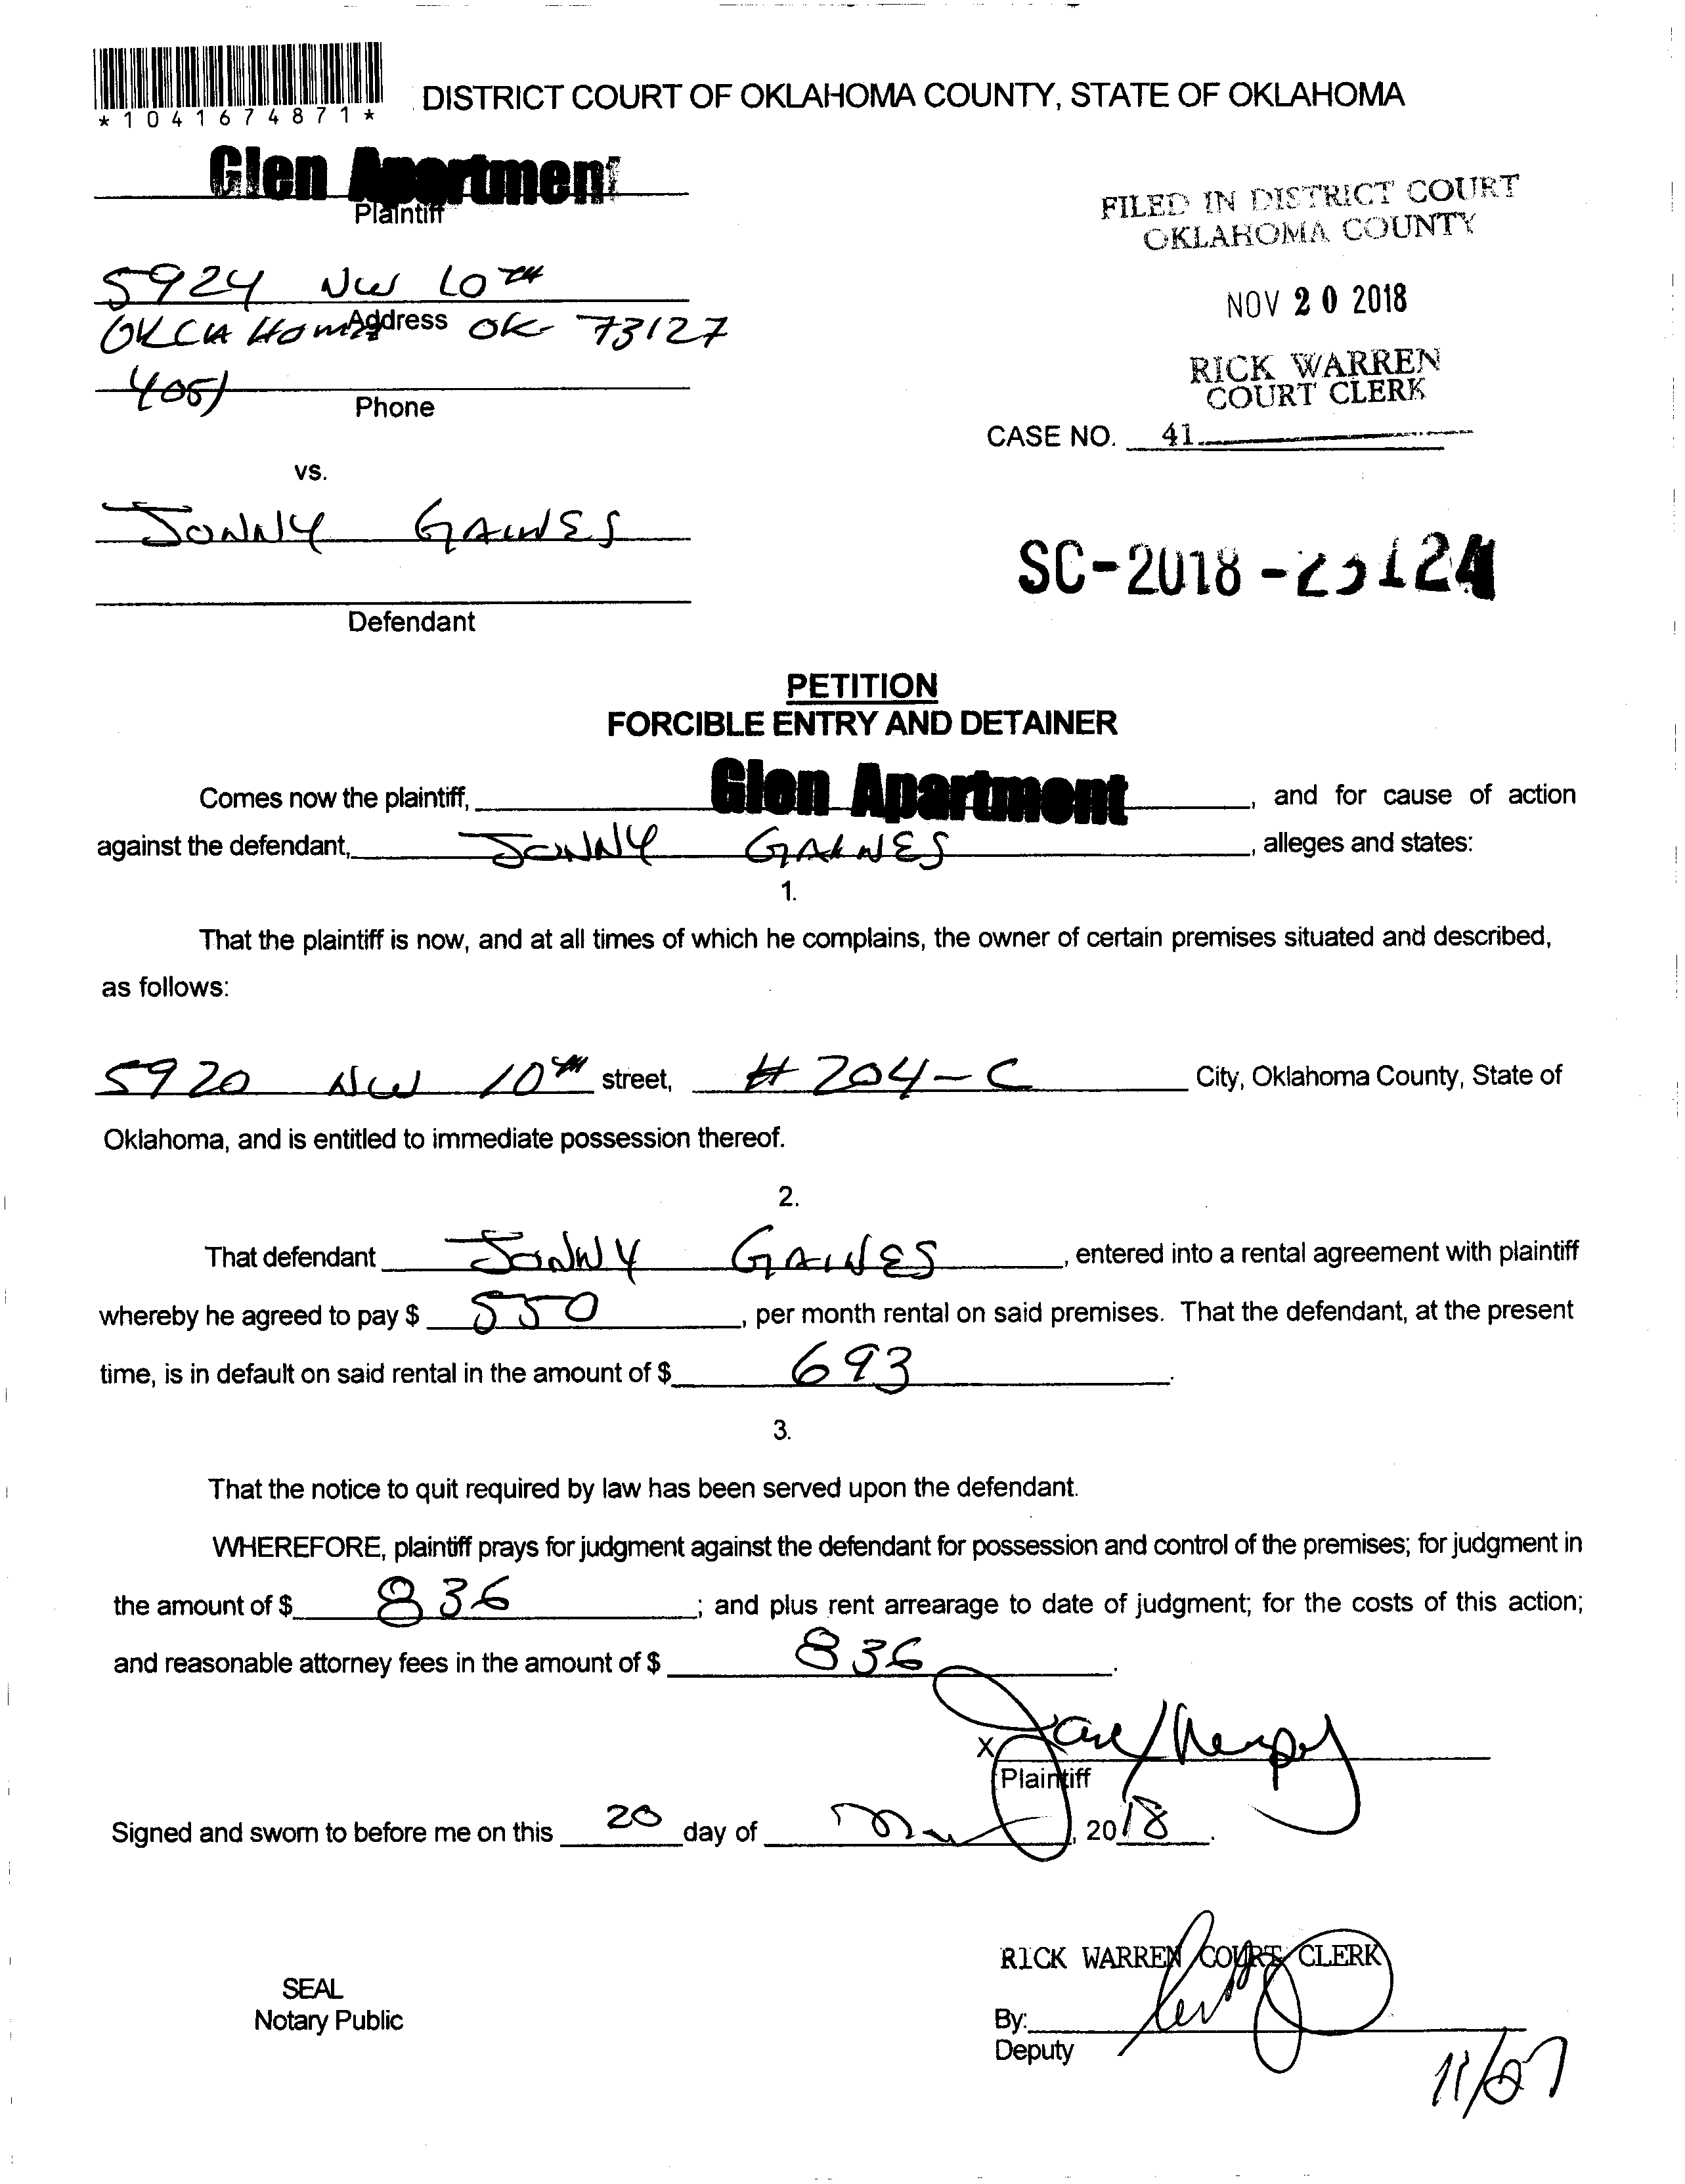 *1041674871*
DISTRICT COURT OF OKLAHOMA COUNTY, STATE OF OKLAHOMA
Glen Apartment
Plaintiff
FILED IN DISTRICT COURT
OKLAHOMA COUNTY
5924 NW 10TH
Address
OKLAHOMA OK 73127
NOV 20 2018
RICK WARREN
COURT CLERK
405)
Phone
CASE NO. 41
vs.
JONNY GAINES
SC-2018-
Defendant
PETITION
FORCIBLE ENTRY AND DETAINER
Comes now the plaintiff, Glen Apartment, and for cause of action
against the defendant, JONNY GAINES, alleges and states:
1.
That the plaintiff is now, and at all times of which he complains, the owner of certain premises situated and described,
as follows:
5920 NW 10TH street, # 204-C City, Oklahoma County, State of
Oklahoma, and is entitled to immediate possession thereof.
2.
That defendant JONNY GAINES, entered into a rental agreement with plaintiff
whereby he agreed to pay $ 550, per month rental on said premises. That the defendant, at the present
time, is in default on said rental in the amount of $ 693.
3.
That the notice to quit required by law has been served upon the defendant.
WHEREFORE, plaintiff prays for judgment against the defendant for possession and control of the premises; for judgment in
the amount of $ 836; and plus rent arrearage to date of judgment; for the costs of this action;
and reasonable attorney fees in the amount of $ 836.
X
Plaintiff
Signed and sworn to before me on this 20 day of , 2018.
RICK WARREN COURT CLERK
SEAL
Notary Public
By:
Deputy
11/27